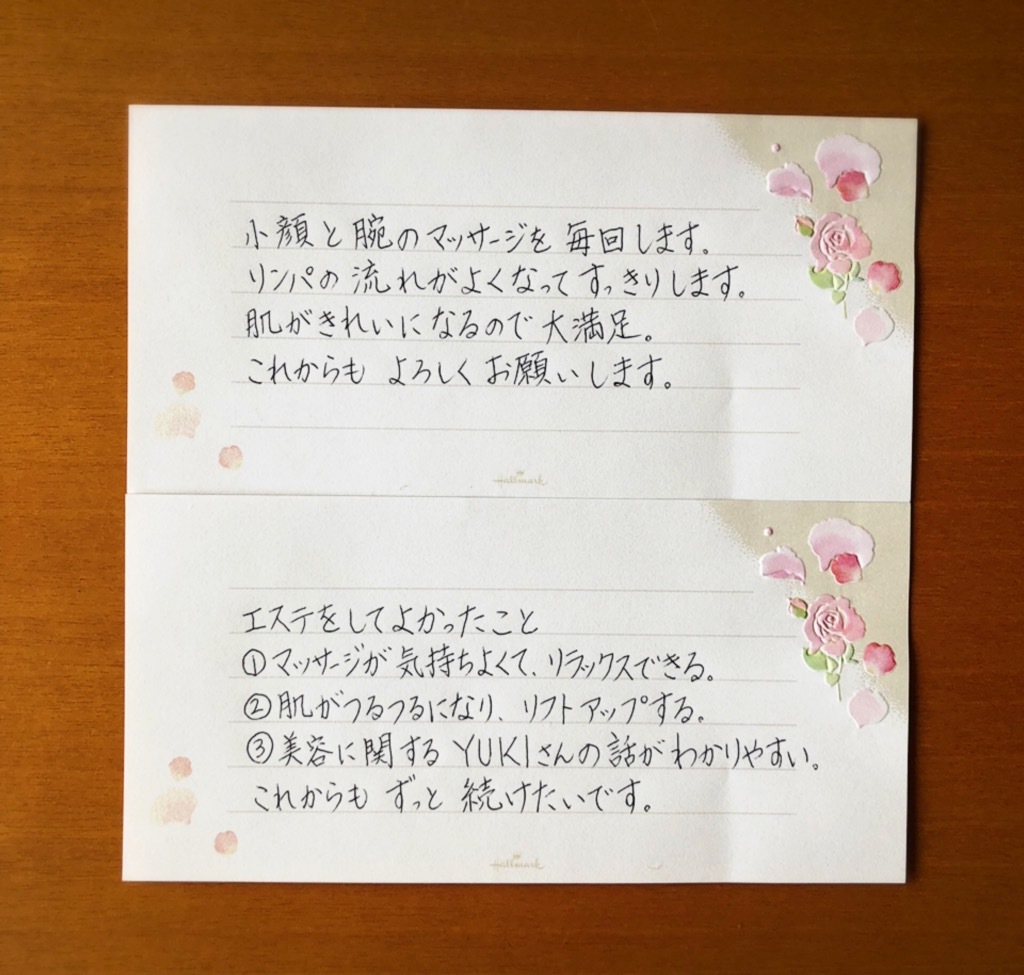 小顔と腕のマッサージを毎回します。
リンパの流れがよくなってすっきりします。
肌がきれいになるので大満足。
これからもよろしくお願いします。
Hallmark
エステをしてよかったこと
①マッサージが気持ちよくて、リラックスできる。
②肌がつるつるになり、リフトアップする。
③美容に関するYUKIさんの話がわかりやすい。
これからもずっと続けたいです。
Hallmark